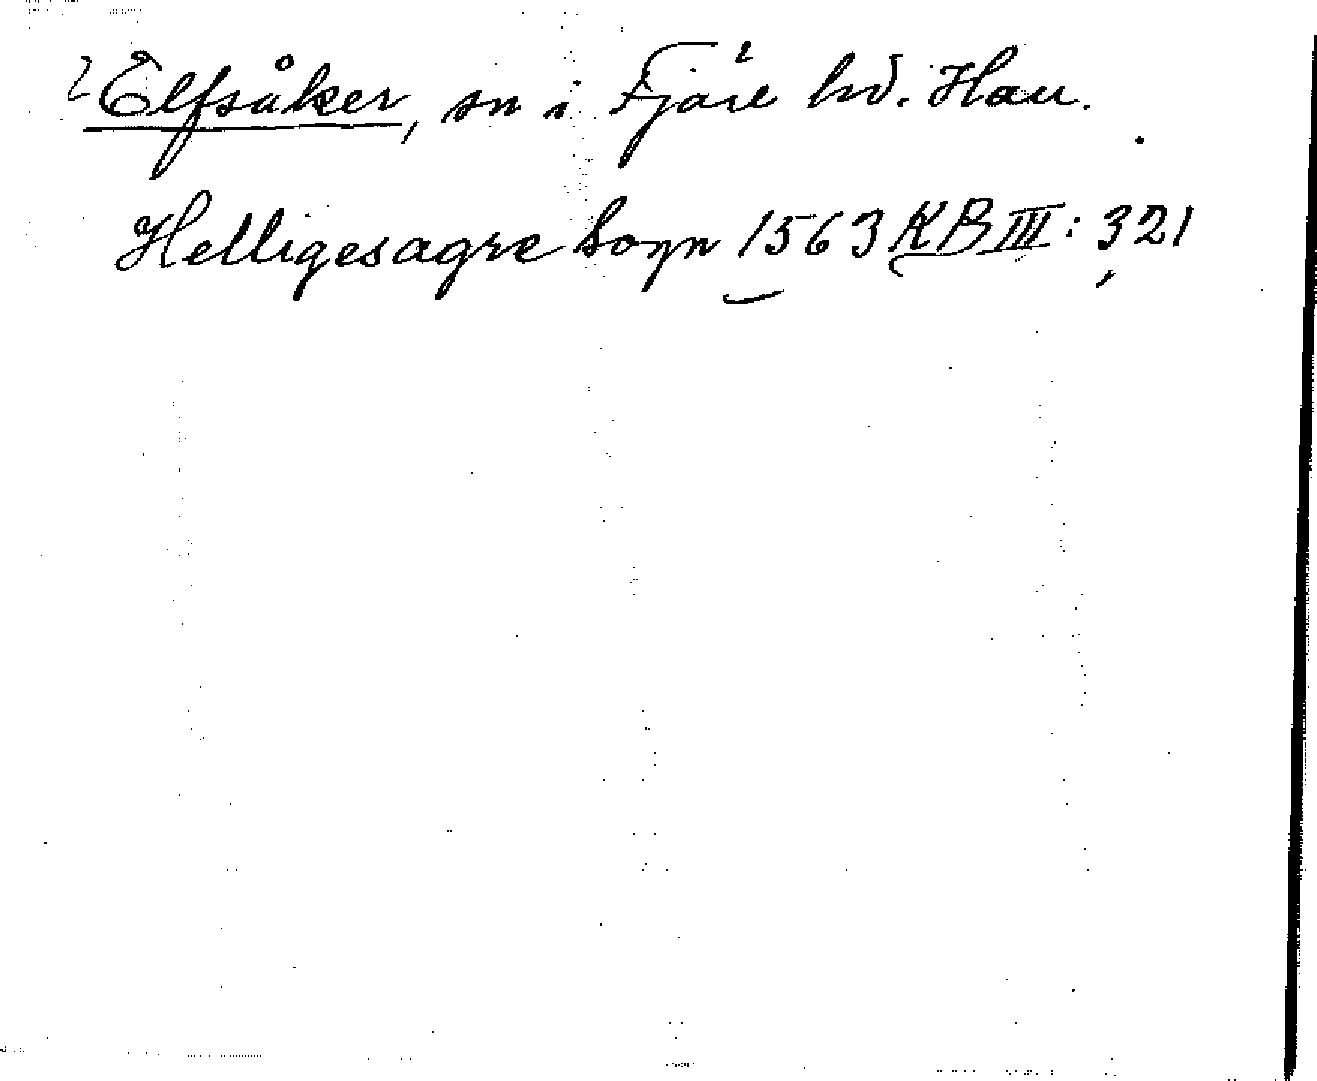 Elfsåker, sn i Fjäre hd. Hall.
Helligesagre Sogn 1563 KB III: 321